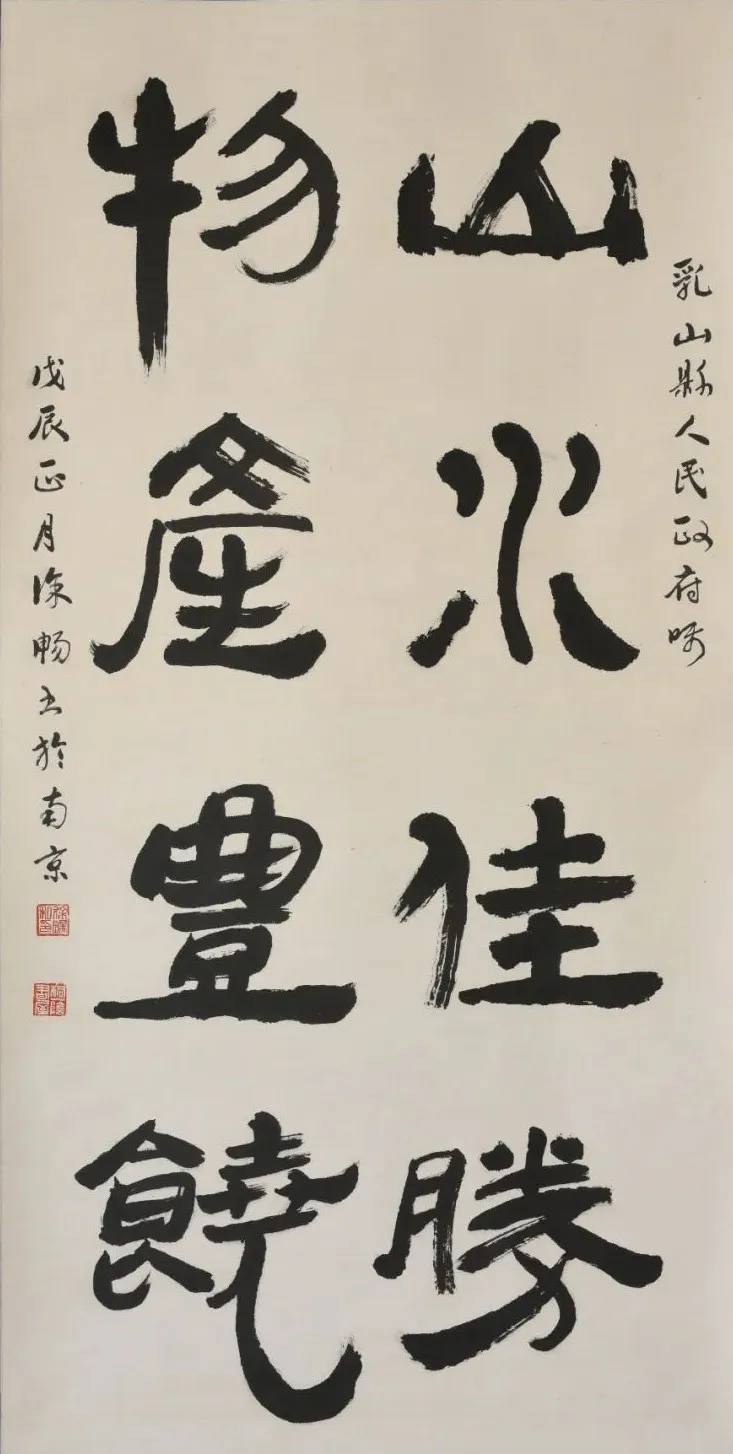 乳山縣人民政府嘱
山水佳勝
物產豐饒
戊辰正月徐暢書於南京